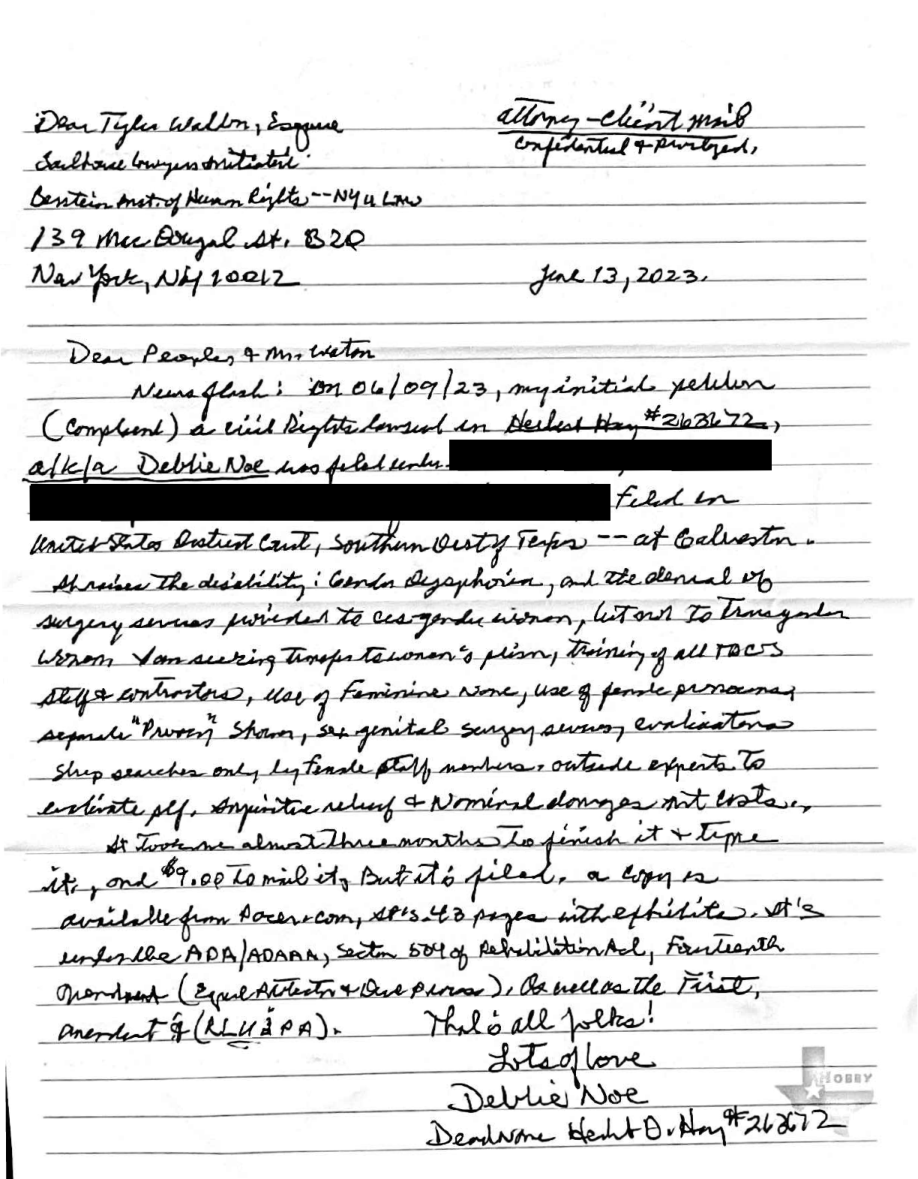 Dear Tyler Walton, Esquire
attorney-client mail
Confidential & Privileged,
Jailhouse Lawyers Initiative
Berstein Inst. of Human Rights -- NYU Law
139 MacDougal St. B20
New York, NY 10012
June 13, 2023.
Dear Peoples, & Mr. Walton
News flash: On 06/09/23, my initial petition
(Complaint) a civil Rights lawsuit in Herbert Hay #263672,
a/k/a Debbie Noe was filed under
Filed in
United States District Court, Southern Dist of Texas -- at Galveston.
It raises the disability: Gender Dysphoria, and the denial of
surgery services provided to cis-gender women, but not to Transgender
women. I am seeking transfer to women's prison, training of all TDCJ
staff & contractors, use of Feminine Name, use of female pronouns,
separate "Privacy" Shower, genital surgery services, evaluations
Strip searches only by female staff members, outside experts to
evaluate relief & Nominal damages costs.
It took me almost three months to finish it & type
it, and $9.00 to mail it, But it's filed. a copy is
available from Pacer.com, It's 43 pages with exhibits. It's
under the ADA/ADAAA, Section 504 of Rehabilitation Act, Fourteenth
Amendment (Equal Protection & Due Process), As well as the First,
amendment & (RLUIPA). That's all folks!
Lots of love
Debbie Noe
Deadname D. Hay #263672
HOBBY